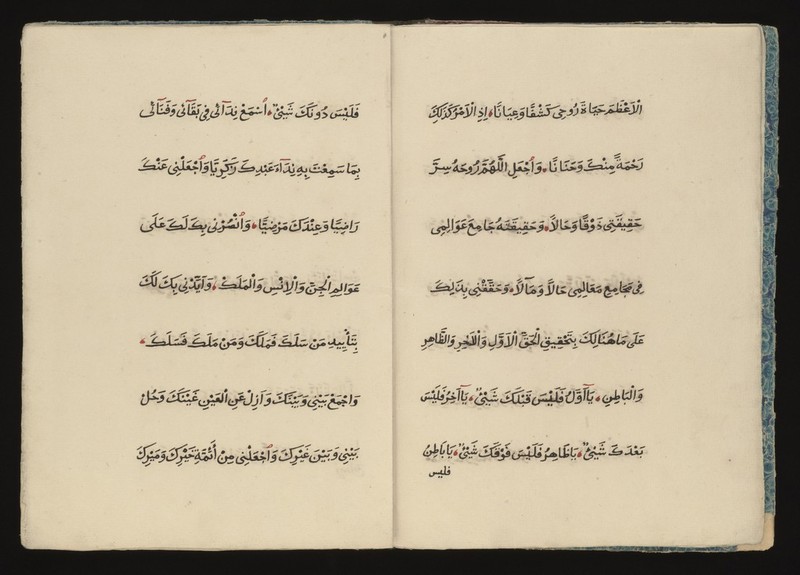 الْاَعْظَمَ حَيَاةَ رُوحِى كَشْفًا وَعِيَانًا، اِذِ الْاَمْرُ كَذٰلِكَ
رَحْمَةً مِنْكَ وَحَنَانًا، وَاجْعَلِ اللّٰهُمَّ رُوحَهُ سِرَّ
حَقِيقَتِى ذَوْقًا وَحَالًا، وَحَقِيقَتَهُ جَامِعَ عَوَالِمِى
فِى مَجَامِعِ مَعَالِمِى حَالًا وَمَآلًا، وَحَقِّقْنِى بِذٰلِكَ
عَلَى مَا هُنَالِكَ بِتَحْقِيقِ الْحَقِّ الْاَوَّلِ وَالْاٰخِرِ وَالظَّاهِرِ
وَالْبَاطِنِ، يَآ اَوَّلُ فَلَيْسَ قَبْلَكَ شَيْئٌ، يَآ اٰخِرُ فَلَيْسَ
بَعْدَكَ شَيْئٌ، يَا ظَاهِرُ فَلَيْسَ فَوْقَكَ شَيْئٌ، يَا بَاطِنُ
فليس
فَلَيْسَ دُونَكَ شَيْئٌ، اُسْمَعْ نِدَآئِى فِى بَقَآئِى وَفَنَآئِى
بِمَا سَمِعْتَ بِهِ نِدَاءَ عَبْدِكَ زَكَرِيَّا وَاجْعَلْنِى عَنْكَ
رَاضِيًا وَعِنْدَكَ مَرْضِيًّا، وَانْصُرْنِى بِكَ لَكَ عَلَى
عَوَالِمِ الْجِنِّ وَالْاِنْسِ وَالْمَلَكْ، وَاَيِّدْنِى بِكَ لَكَ
بِتَأْيِيدِ مَنْ سَلَكَ فَمَلَكَ وَمَنْ مَلَكَ فَسَلَكَ،
وَاجْمَعْ بَيْنِى وَبَيْنَكَ وَاَزِلْ عَنِ الْعَيْنِ غَيْنَكَ وَحُلْ
بَيْنِى وَبَيْنَ غَيْرِكَ وَاجْعَلْنِى مِنْ أَئِمَّةِ خَيْرِكَ وَمَيْرِكَ